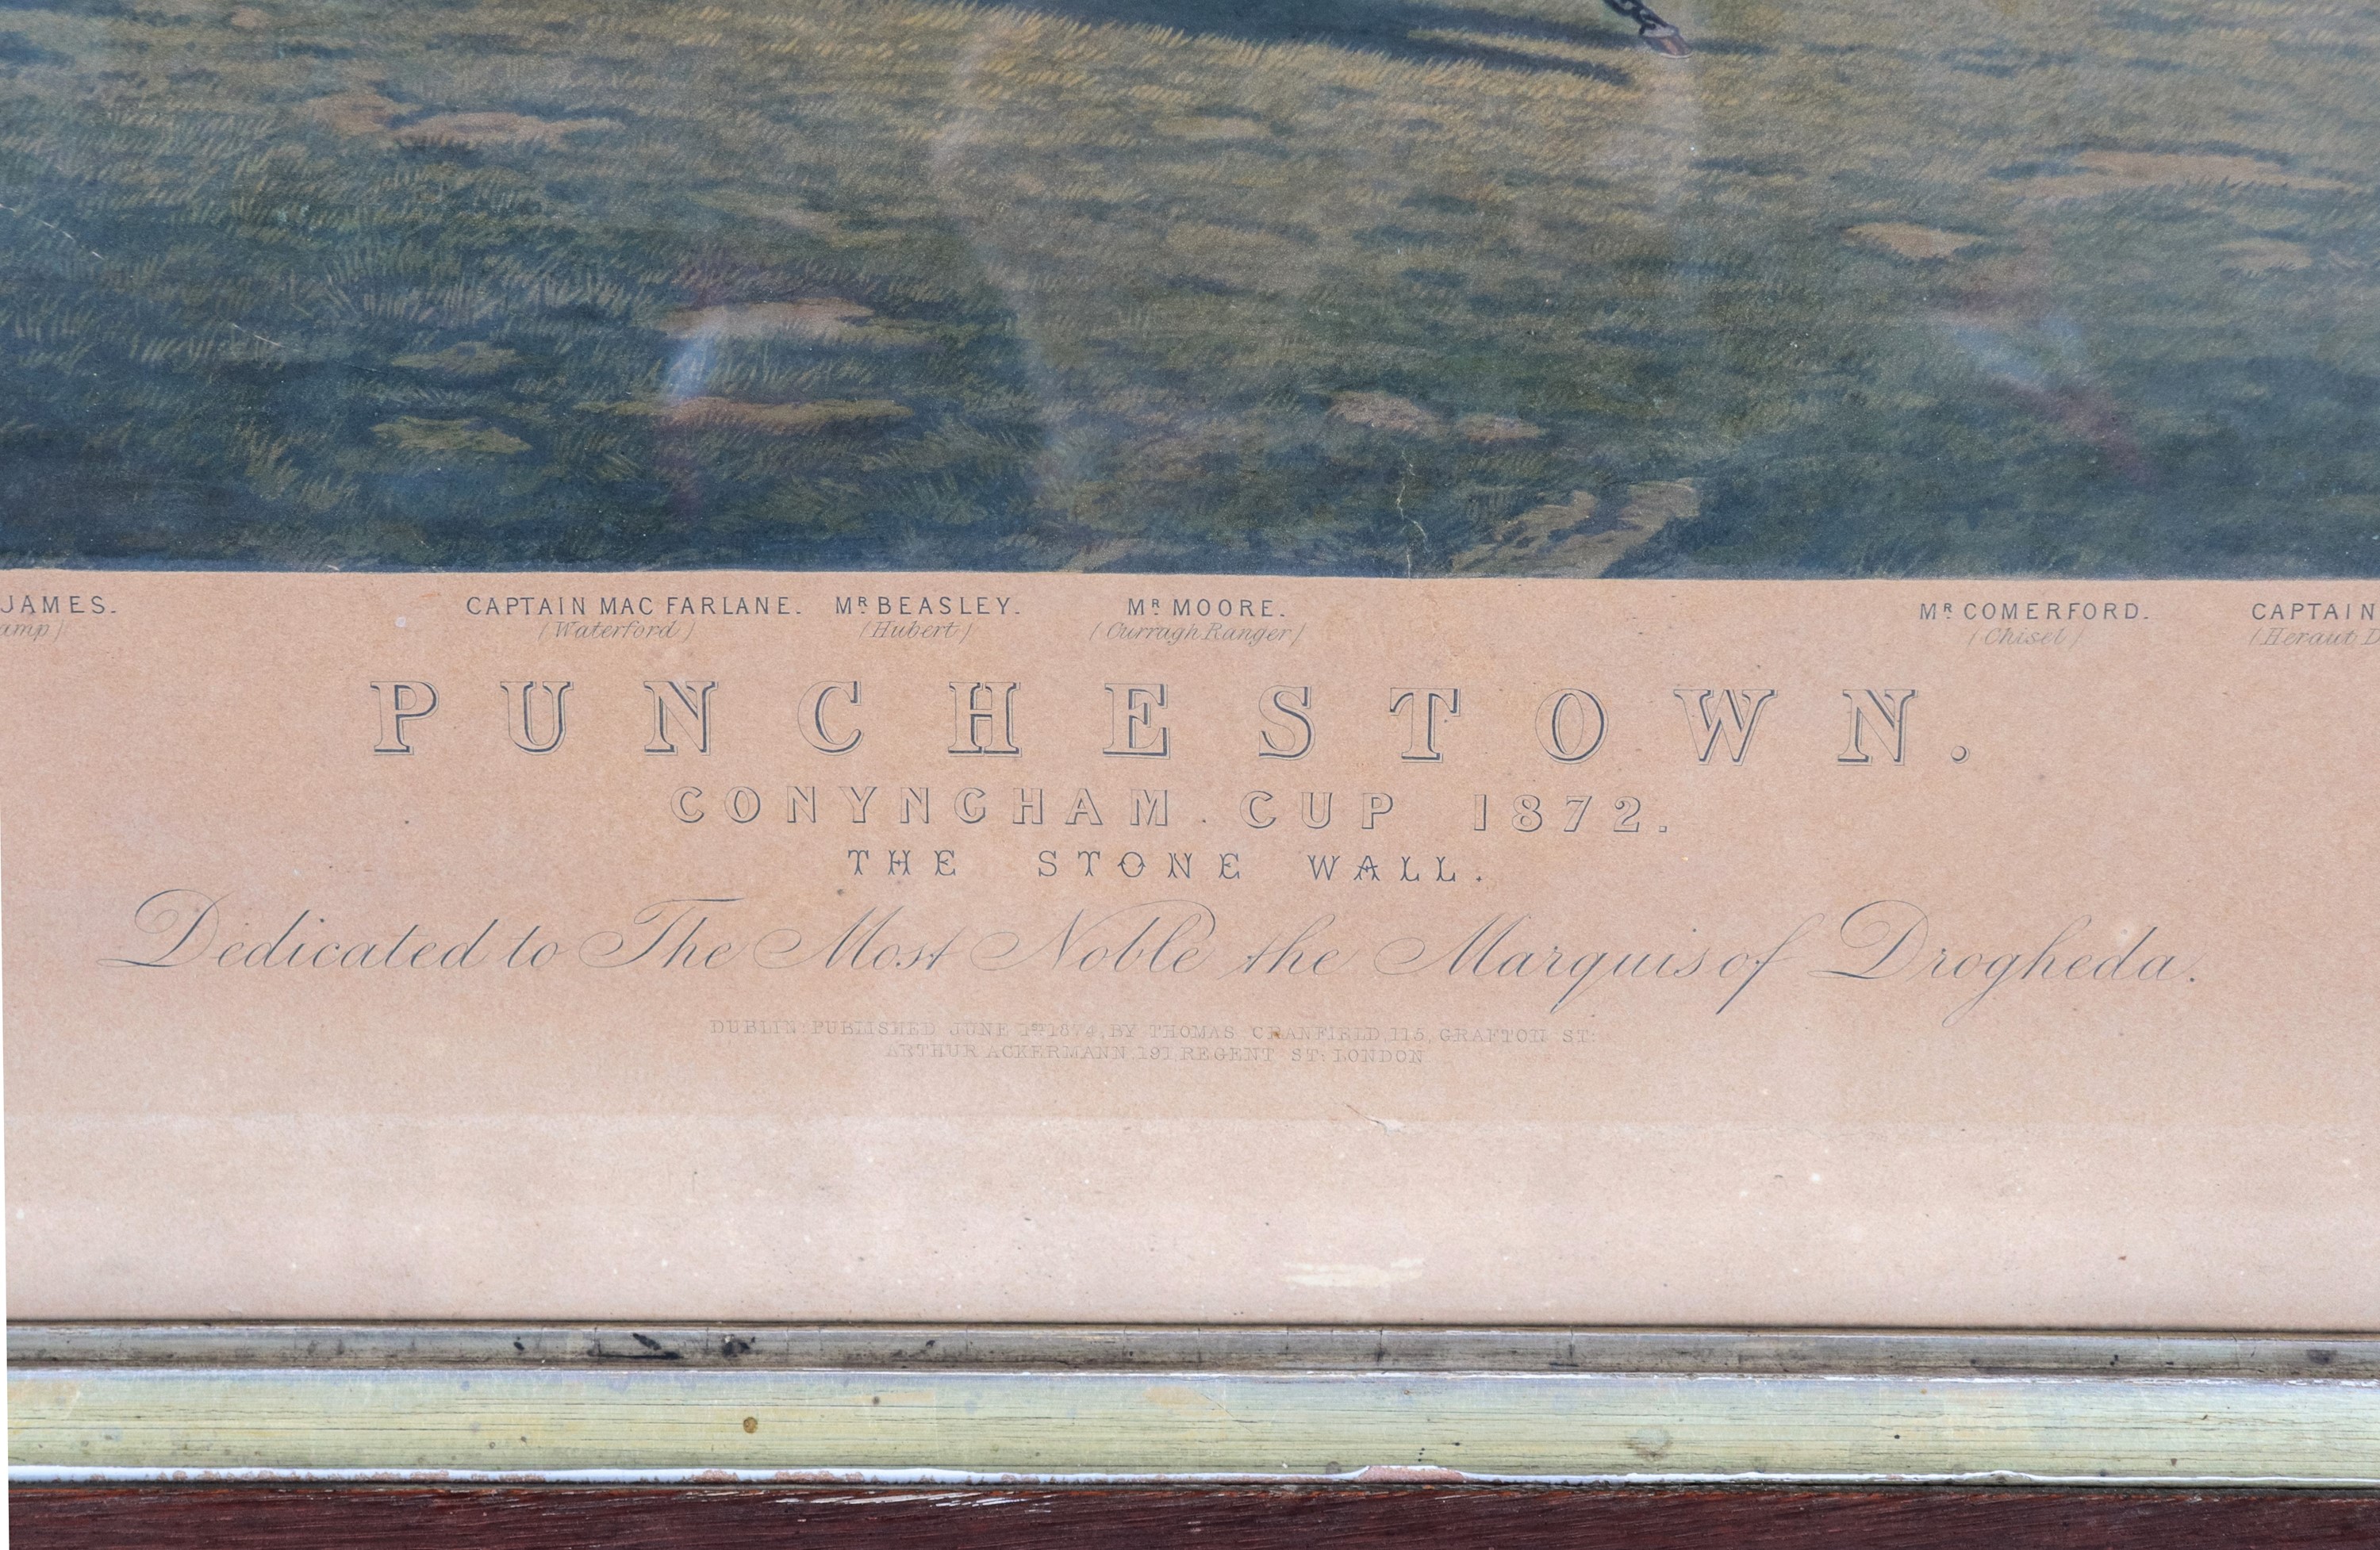 JAMES. CAPTAIN MAC FARLANE. MR BEASLEY. MR MOORE. MR COMERFORD. CAPTAIN
(Waterford) (Hubert) (Curragh Ranger) (Chisel) (Heraut
PUNCHESTOWN.
CONYNGHAM CUP 1872.
THE STONE WALL.
Dedicated to The Most Noble the Marquis of Drogheda.
DUBLIN: PUBLISHED JUNE 1ST 1874, BY THOMAS CRANFIELD, 115, GRAFTON ST:
ARTHUR ACKERMANN, 191, REGENT ST: LONDON